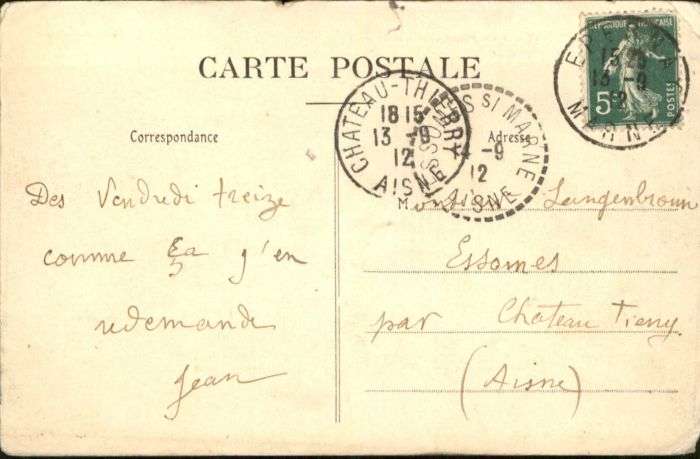 CARTE POSTALE
Correspondance
Des Vendredi treize
comme ça j'en
redemande
Jean
Adresse
Monsieur Langenbronn
Essomes
par Chateau Tierry
(Aisne)
CHATEAU-THIERRY
18 15
13 -9
12
AISNE
ESSOMES S/ MARNE
-9
12
AISNE
REPUBLIQUE FRANÇAISE
5c
POSTES
15
13 -9
12
MARNE